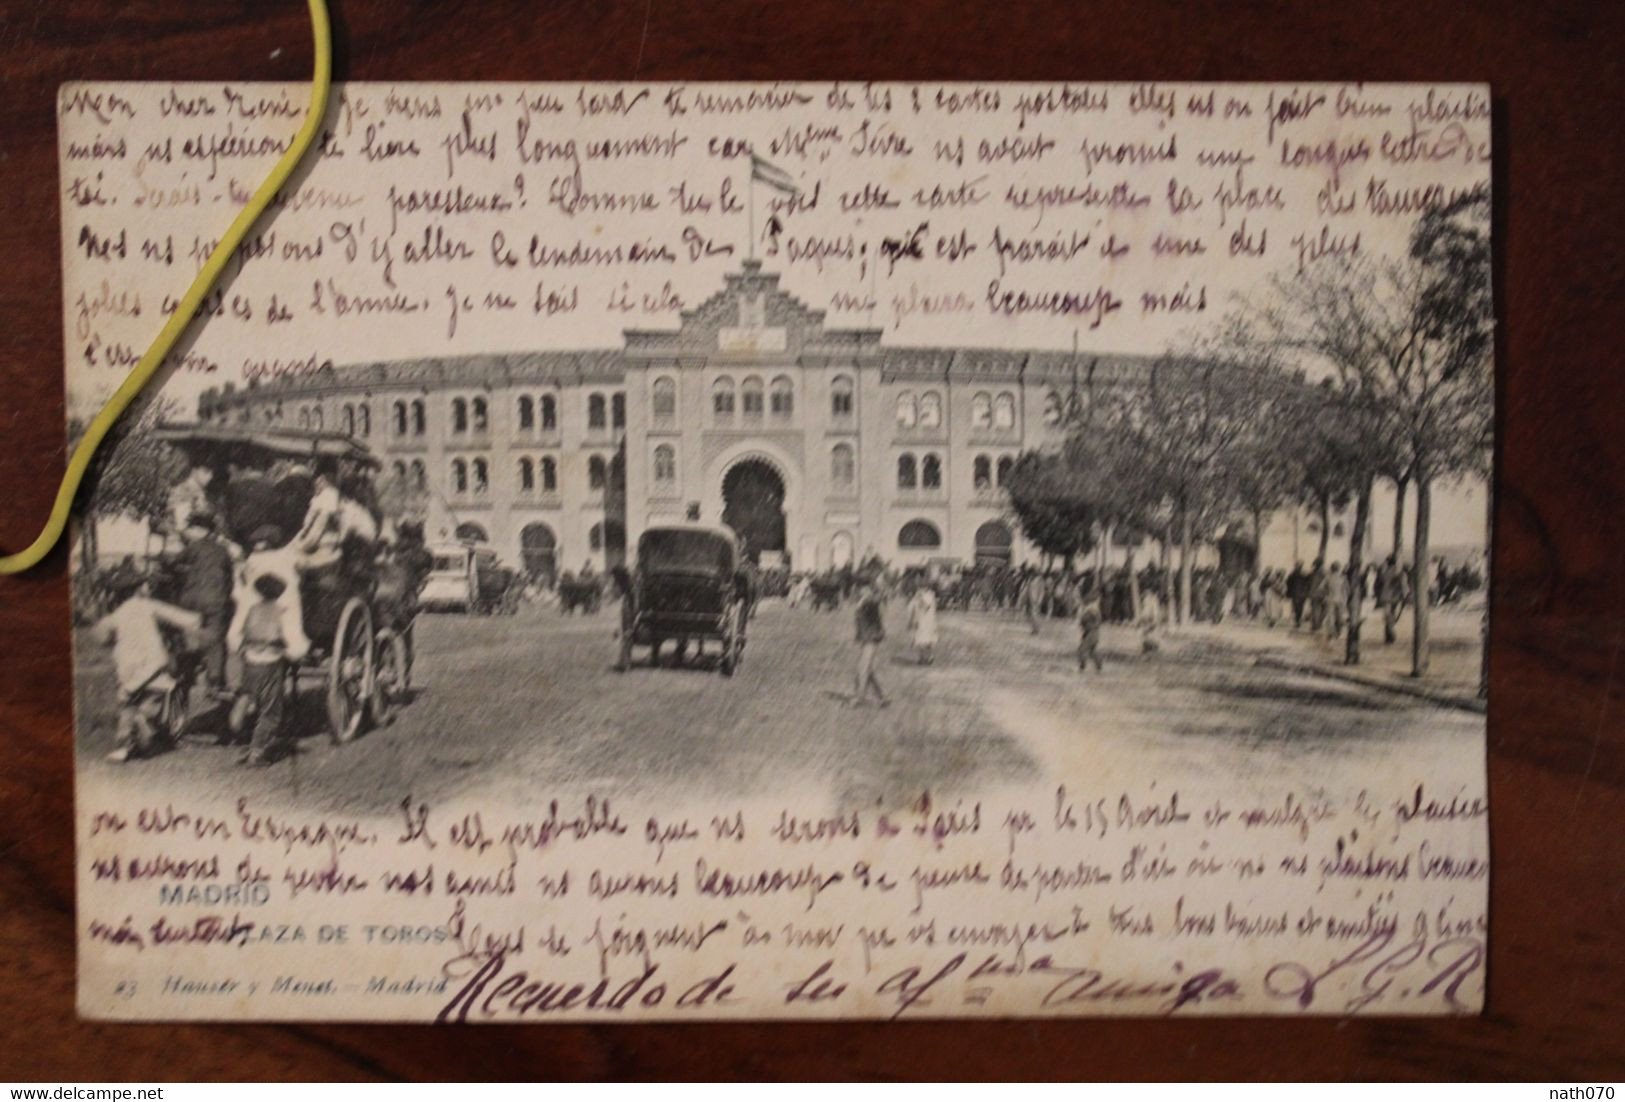 Mon cher René. Je viens un peu tard te remercier de tes 2 cartes postales elles ns on fait bien plaisir
mais ns espérions te lire plus longuement car Mme Sèvre ns avait promis une longue lettre de
toi. Serais-tu devenu paresseux? Comme tu le vois cette carte représente la place des taureaux
ns ns proposons d'y aller le lendemain de Paques; c'est parait il une des plus
jolies courses de l'année. Je ne sais si cela me plaira beaucoup mais
quand
on est en Espagne. Il est probable que ns serons à Paris pr le 15 Avril et malgré le plaisir
ns aurons de revoir nos amis ns aurons beaucoup de peine de partir d'ici où ns ns plaisons beaucoup
MADRID
PLAZA DE TOROS
Tous se joignent à moi pr vs envoyer à tous bons baisers et amitiés
23 Hauser y Menet. - Madrid
Recuerdo de su afma amiga S. G. R.
nath070